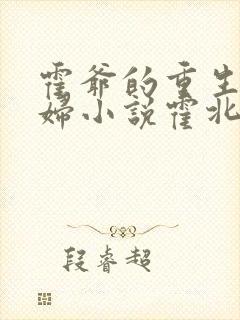 霍爷的重生
妇小说霍北
段睿超